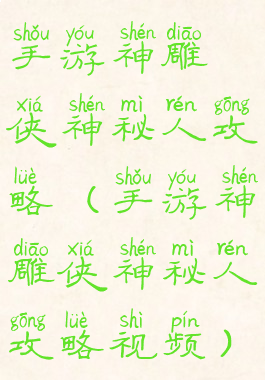 shǒu yóu shén diāo
手游神雕
xiá shén mì rén gōng
侠神秘人攻
lüè shǒu yóu shén
略（手游神
diāo xiá shén mì rén
雕侠神秘人
gōng lüè shì pín
攻略视频）